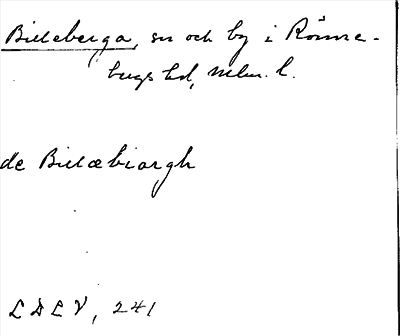 Billeberga, sn och by i Rönne-
bergs hd, Mlm. l.
de Billæbiargh
L D L V, 241